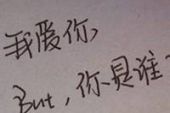 我爱你,
But,你是谁?